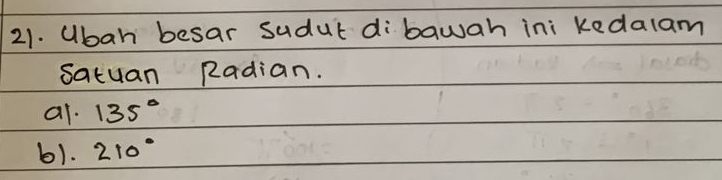 21. Ubah besar Sudut di bawah ini Kedalam
Satuan Radian.
a). 135°
b). 210°